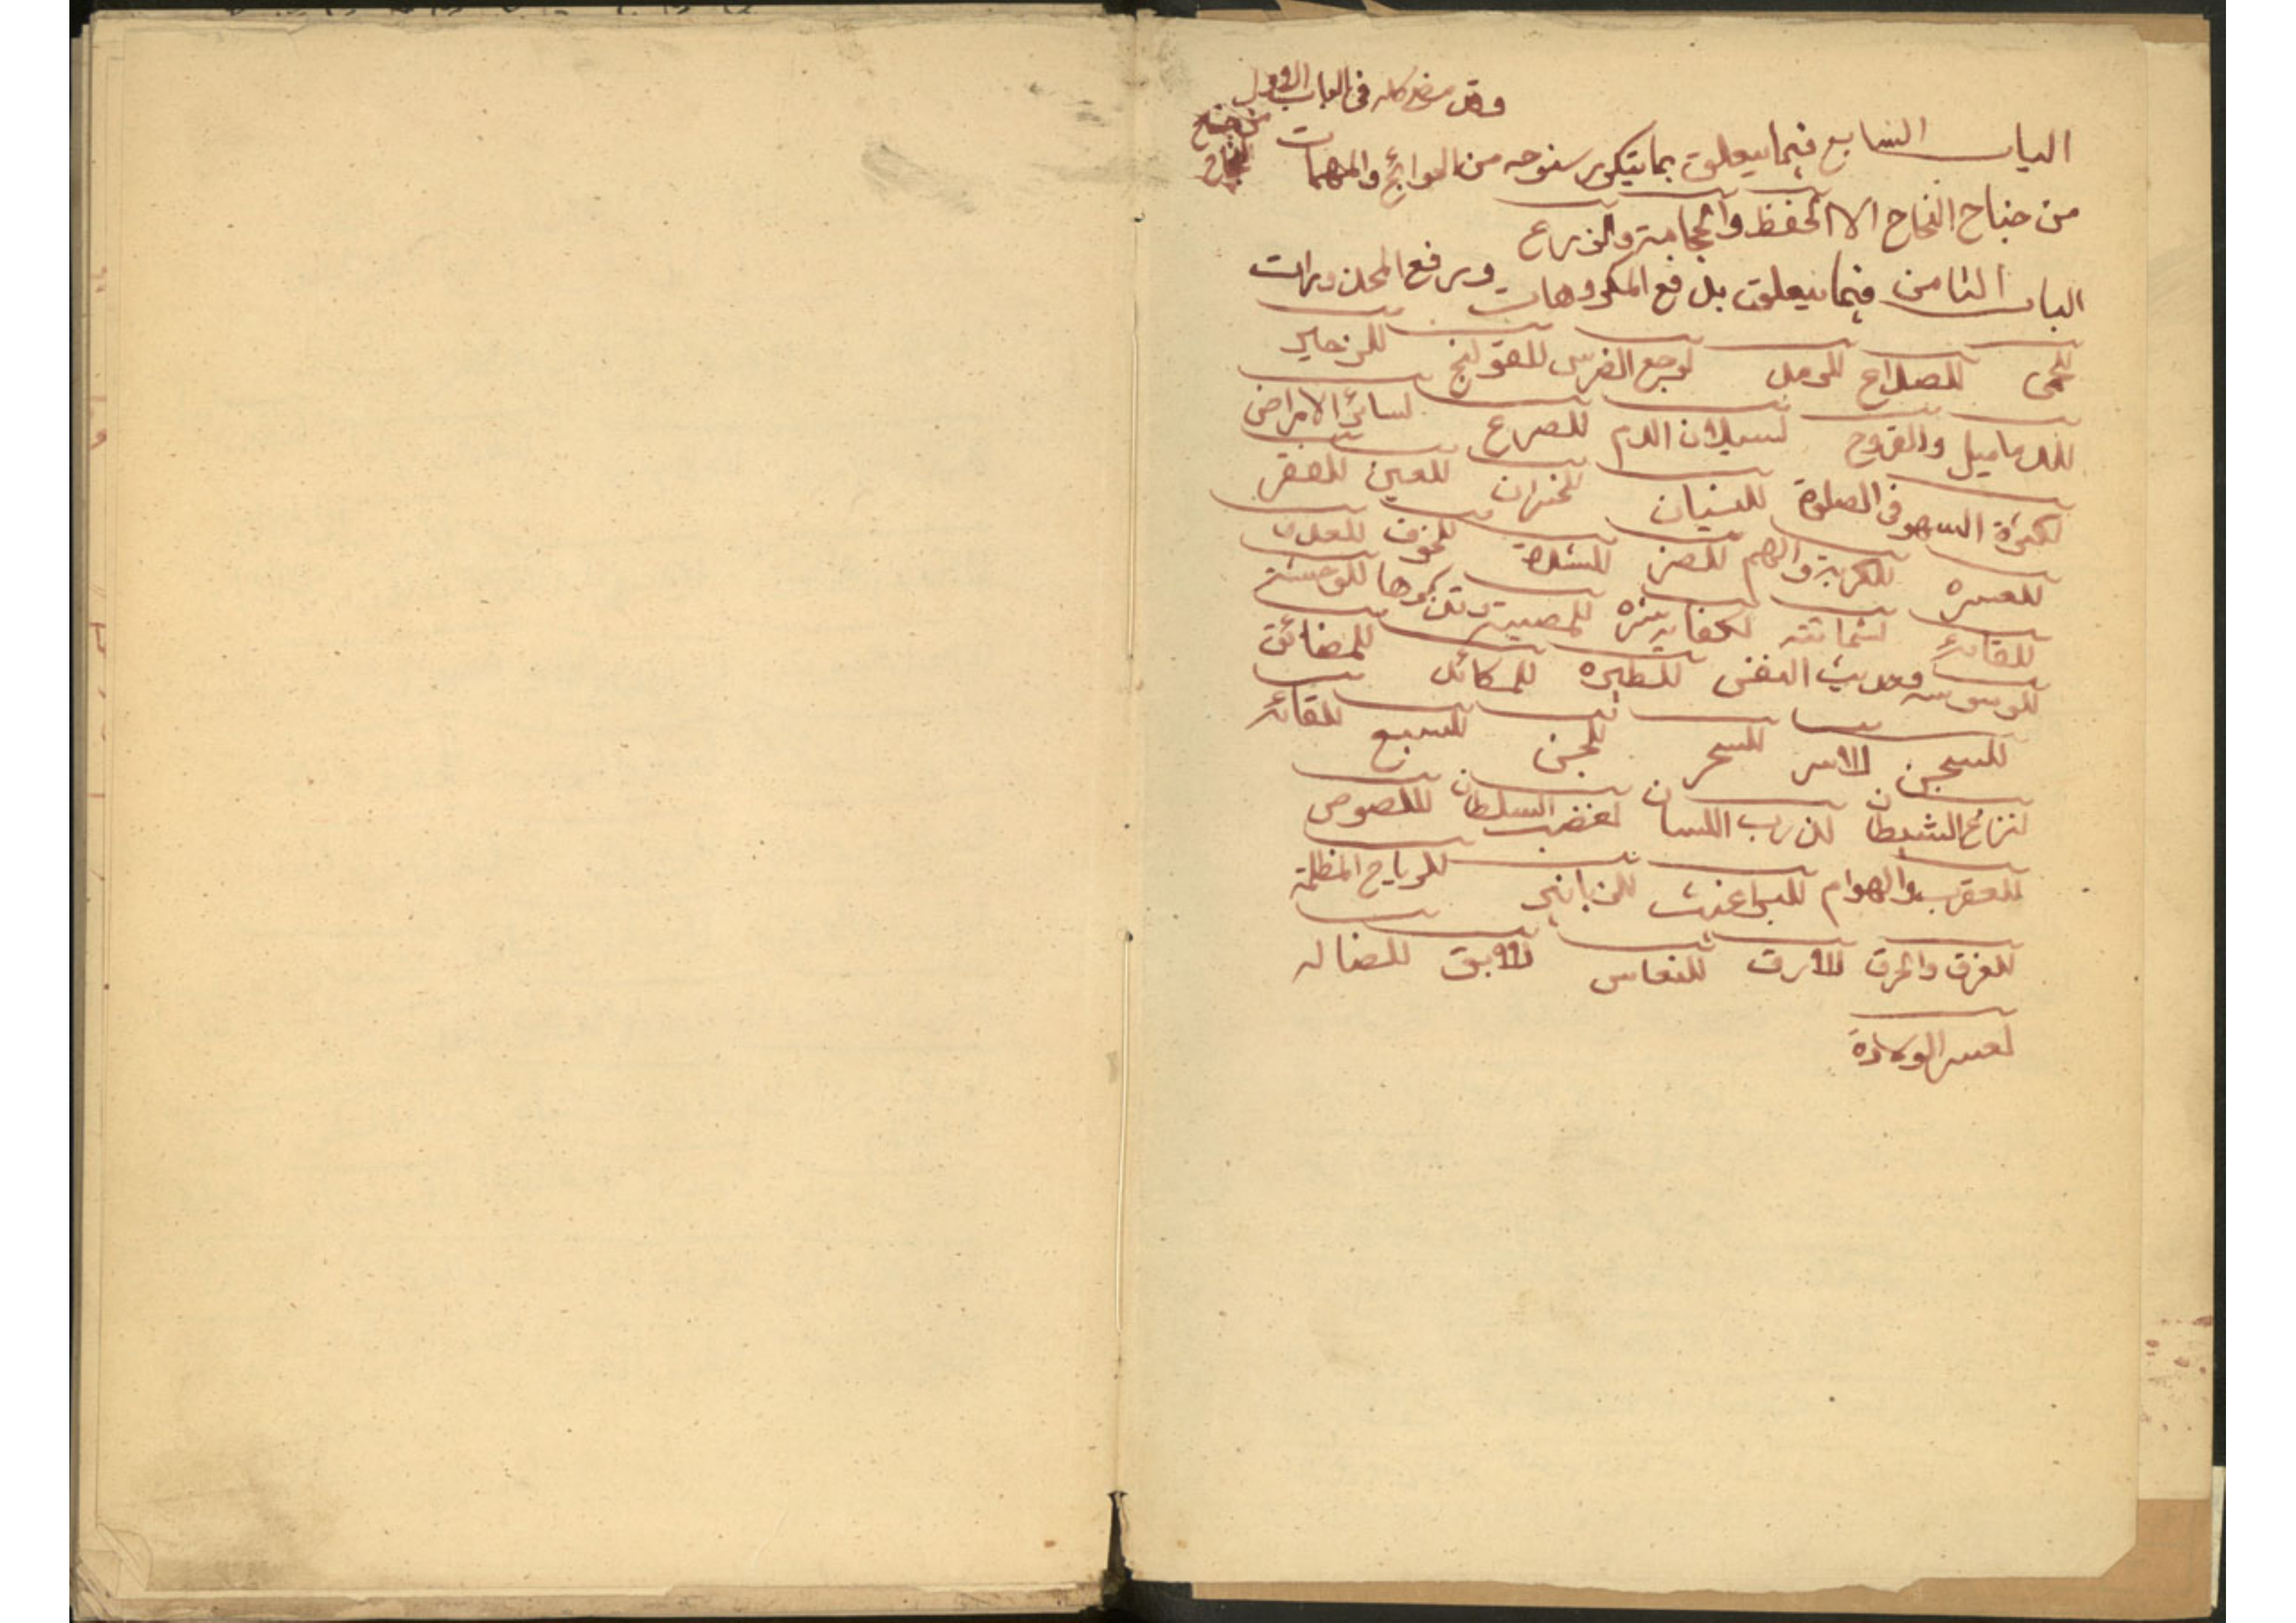 وقد مضى كله في الباب الاول
من جناح
النجاح
الباب السابع فيما يتعلق بما يتكرر سنوحه من الحوائج والمهمات
من جناح النجاح الا الحفظ والحجامة والزرع
الباب الثامن فيما يتعلق بدفع المكروهات ورفع المحذورات
للحمى للصداع للرمد لوجع الضرس للقولنج للزحير
للدماميل والقروح لسيلان الدم للصرع لسائر الامراض
لكثرة السهو في الصلوة للنسيان للعين للفقر
للعسرة للكربة والهم للضر للشدة للخوف للعدو
للقائه لشماتته لكفاية شره للمصيبة وتذكرها للوحشة
للوسوسه وحديث النفس للطيره للمكائد للمضائق
للسجن للاسر للسحر للجن للسبع للقائه
لنزغ الشيطان لذرب اللسان لغضب السلطان للصوص
للعقرب والهوام للبراغيث للزنابير للرياح المظلمة
للغرق والحرق للارق للنعاس للابق للضاله
لعسر الولادة